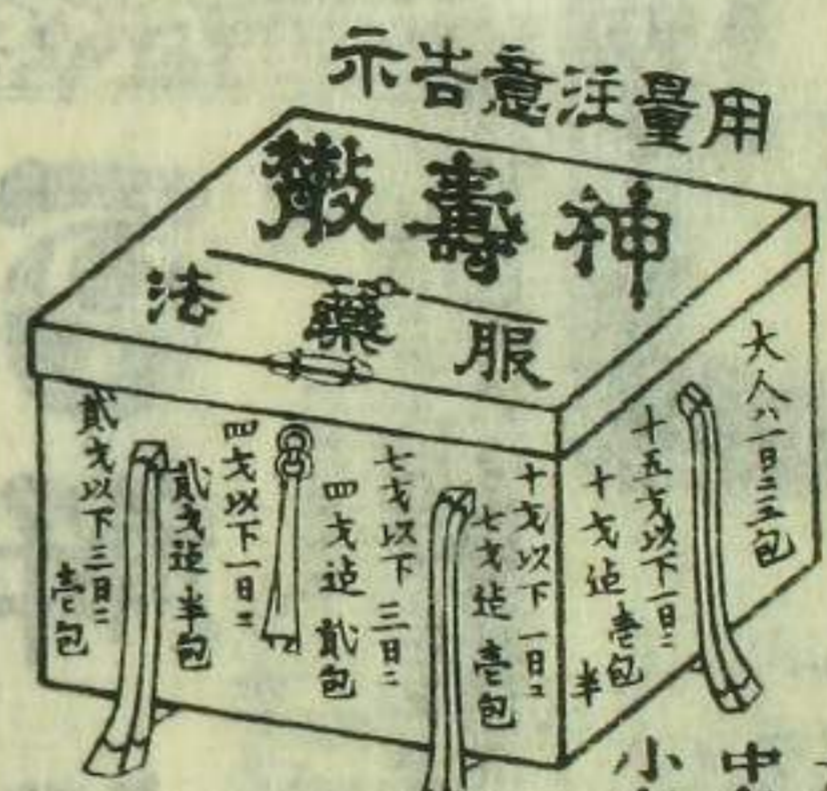 用量注意告示
神壽散
服藥法
大人ハ一日ニ三包
十五才以下一日ニ
十才迠壱包半
十才以下一日ニ
七才迠壱包
七才以下三日ニ
四才迠貳包
四才以下一日ニ
貳才迠半包
貳才以下三日ニ
壱包
中
小